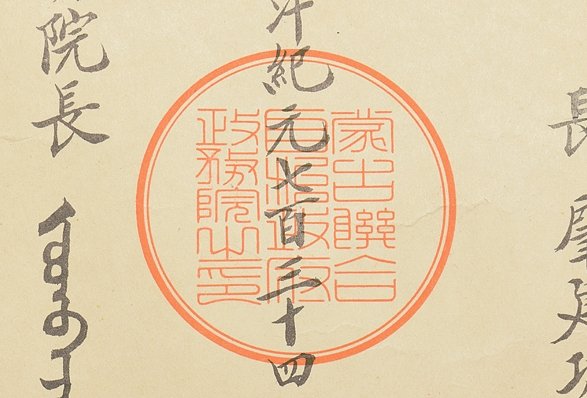 長
汗紀元七百三十四
院長
蒙古聯合
自治政府
政務院之印